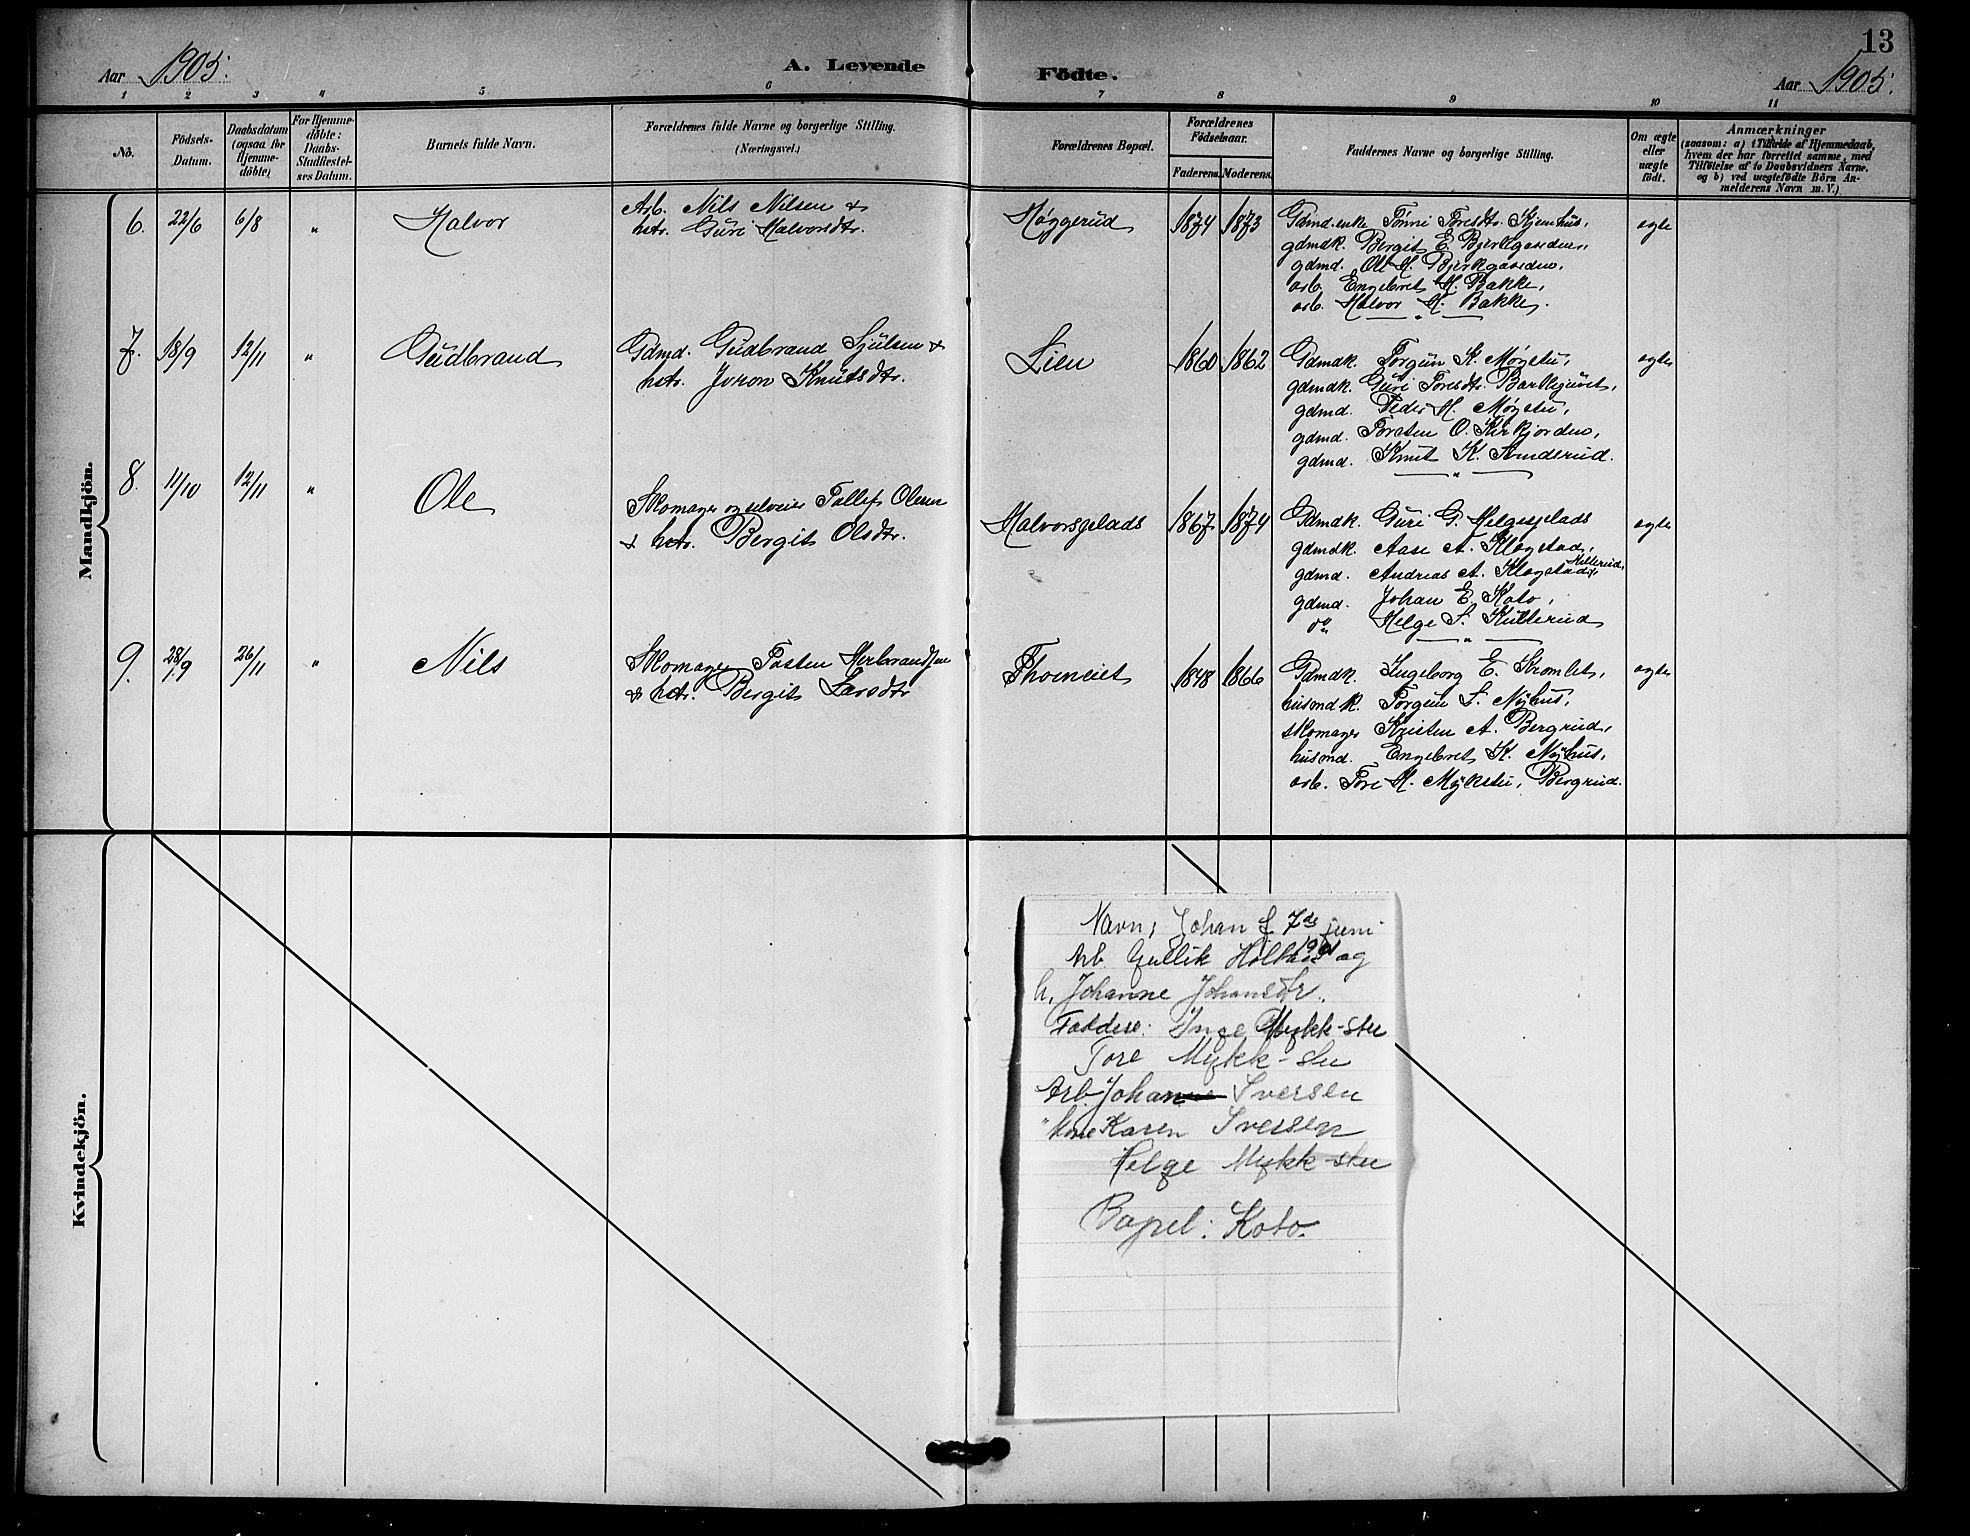 13
Aar 1905.
A. Levende Födte.
Aar 1905.
1 2 3 4 5 6 7 8 9 10 11
No.
Födsels-
Datum.
Daabsdatum
(ogsaa for
Hjemme-
döbte)
For Hjemme-
döbte:
Daabs-
Stadfæstel-
ses Datum.
Barnets fulde Navn.
Forældrenes fulde Navne og borgerlige Stilling.
(Næringsvei.)
Forældrenes Bopæl.
Forældrenes
Födselsaar.
Faderens. Moderens.
Faddernes Navne og borgerlige Stilling.
Om ægte
eller
uægte
födt.
Anmærkninger
(saasom: a) i Tilfælde af Hjemmedaab,
hvem der har forrettet samme, med
Tilföielse af to Daabsvidners Navne.
og b) ved uægtefödte Börn An-
melderens Navn m. V.)
Mandkjön.
6. 22/6 6/8 " Halvor
Arb. Nils Nilsen &
hstr. Guri Halvorsdtr.
Høggerud 1874 1873
Gdmd. enke Tønni Toresdtr. Hjemhus,
gdmdk. Bergit E. Bjerkgaarden,
gdmd. Ole H. Bjerkgaarden,
arb. Engebret H. Bakke,
arb. Halvor H. Bakke.
ægte
7. 18/9 12/11 " Gudbrand
Gdmd. Gudbrand Sjulsen &
hstr. Joron Knutsdtr.
Lien 1860 1862
Gdmdk. Torgun K. Møgstu,
gdmdk. Guri Toresdtr.
gdmd. Peder H. Møgstu,
gdmd. Torsten O. Kirkjorden,
gdmd. Knut K.
ægte
8. 11/10 12/11 " Ole
Skomager og selveier Tollef Olsen
& hstr. Bergit Olsdtr.
Halvorsplads 1867 1874
Gdmdk. Guri G. Helgesplads
gdmdk. Aase A. Klogstad,
gdmd. Andreas A. Klogstad,
gdmd. Johan E. Koto,
do Helge S. Kulterud
ægte
9. 28/9 26/11 " Nils
Skomager Tosten Herbrandsen
& hstr. Bergit Larsdtr
Thorneiet 1848 1866
Gdmdk. Ingeborg E. Tromlet,
husmdk. Torgun L. Nÿhus,
skomager Kristen A. Bergrud,
husmd. Engebret K. Nÿhus,
arb. Tore H. Mÿkstu, Bergrud.
ægte
Kvindekjön.
Navn; Johan f. 7de juni
1901
Arb. Gullik Holthe og
h. Johanne Johansdtr.
Faddere: Inge Mykk-stu
Tore Mykk-stu
Arb. Johan Iversen
" kone Karen Iversen
Helge Mykk-stu
Bopel: Koto.